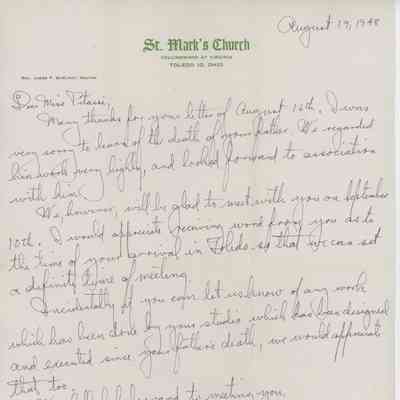 August 19, 1948
St. Mark's Church
COLLINGWOOD AT VIRGINIA
TOLEDO 10, OHIO
Dear Miss Pitassi,
Many thanks for your letter of August 16th. I was
very sorry to learn of the death of your father. We regarded
his work very highly, and looked forward to association
with him.
We however, will be glad to meet with you on September
10th. I would appreciate receiving word from you as to
the time of your arrival in Toledo so that we can set
a definite time of meeting.
Incidentally if you can let us know of any work
which has been done by your studio which has been designed
and executed since your father's death, we would appreciate
that too.
forward to meeting you.